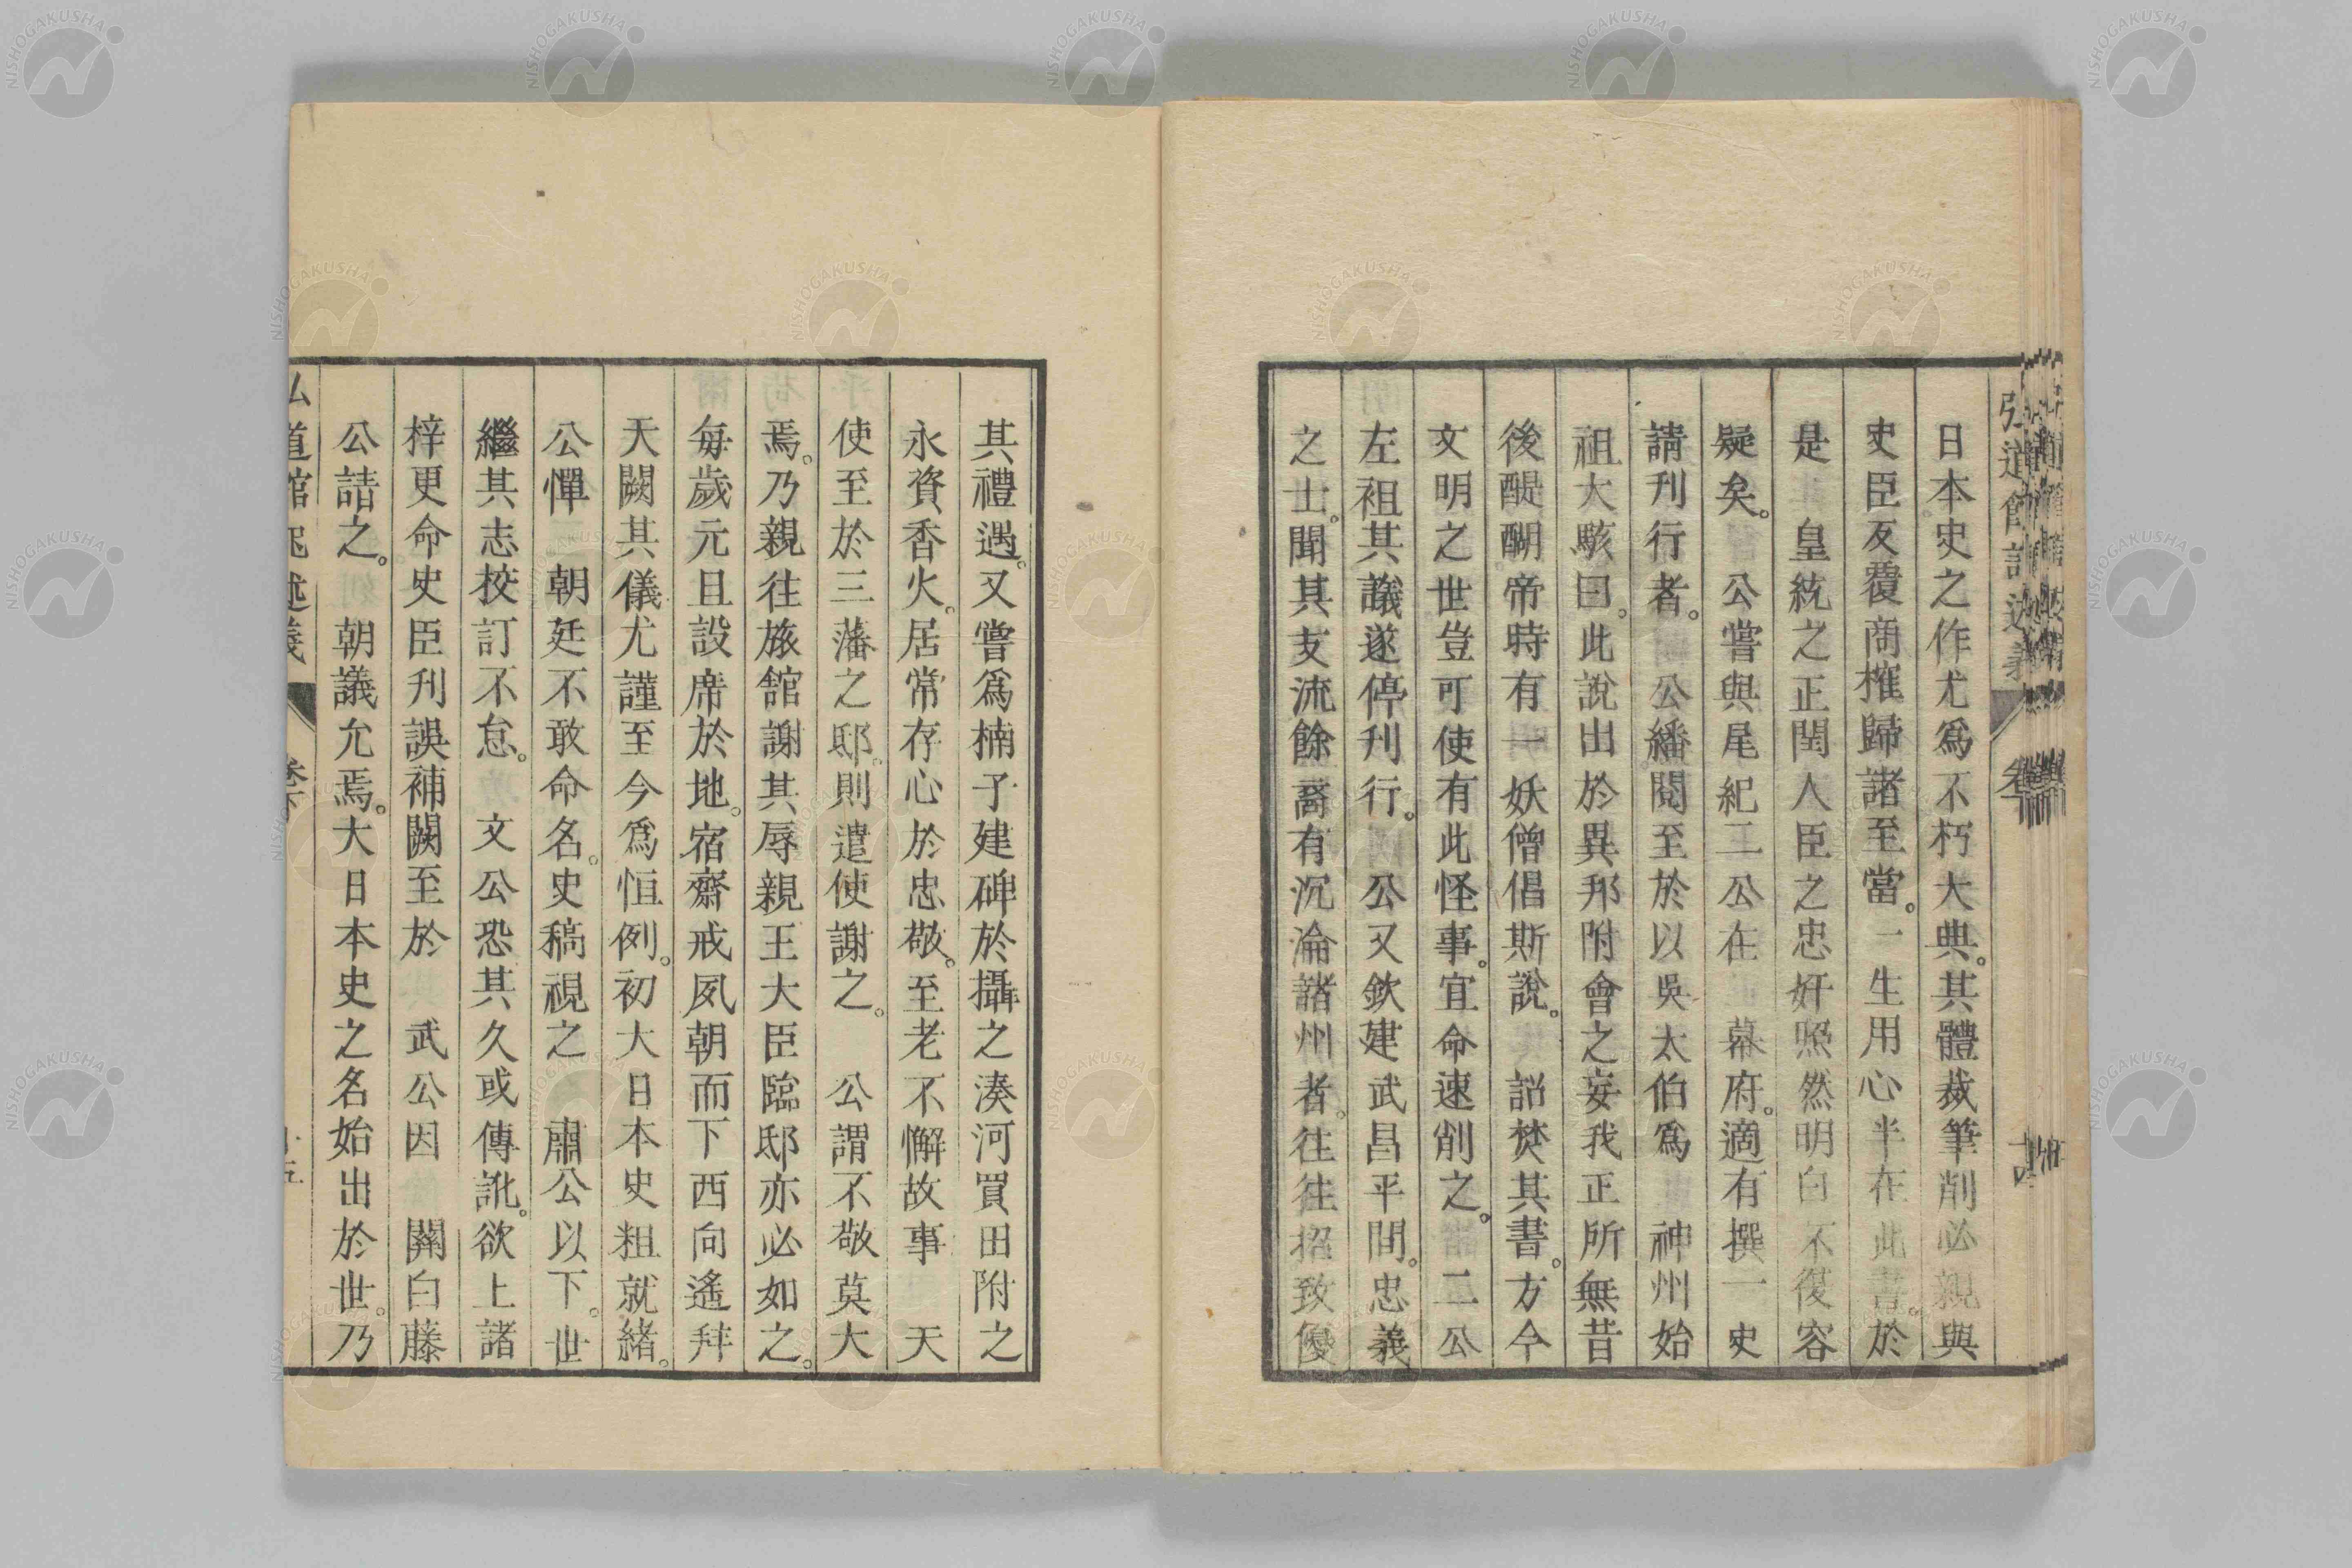 日本史之作尤爲不朽大典。其體裁筆削必親與
史臣反覆商搉歸諸至當。一生用心半在此書。於
是　皇統之正閏人臣之忠奸照然明白不復容
疑矣。　公嘗與尾紀二公在　幕府。適有撰一史
請刊行者。　公繙閱至於以吳太伯爲　神州始
祖大駭曰。此說出於異邦附會之妄我正所無昔
後醍醐帝時有　一妖僧倡斯說。　詔焚其書。方今
文明之世豈可使有此怪事。宜命速削之。二公
左袒其議遂停刊行。　公又欽建武昌平間。忠義
之士。聞其支流餘裔有沉淪諸州者。往往招致優
其禮遇。又嘗爲楠子建碑於攝之湊河買田附之
永資香火。居常存心於忠敬。至老不懈故事　天
使至於三藩之邸。則遣使謝之。　公謂不敬莫大
焉。乃親往旅館謝其辱親王大臣臨邸亦必如之。
每歲元旦設席於地。宿齋戒夙朝而下西向遙拜
天闕其儀尤謹至今爲恒例。初大日本史粗就緒。
公憚　朝廷不敢命名。史稿視之　肅公以下。世
繼其志校訂不怠。　文公恐其久或傳訛。欲上諸
梓更命史臣刊誤補闕至於　武公因　關白藤
公請之。　朝議允焉。大日本史之名始出於世。乃
弘道館記述義
弘道館記述義　卷下　十五
NISHOGAKUSHA